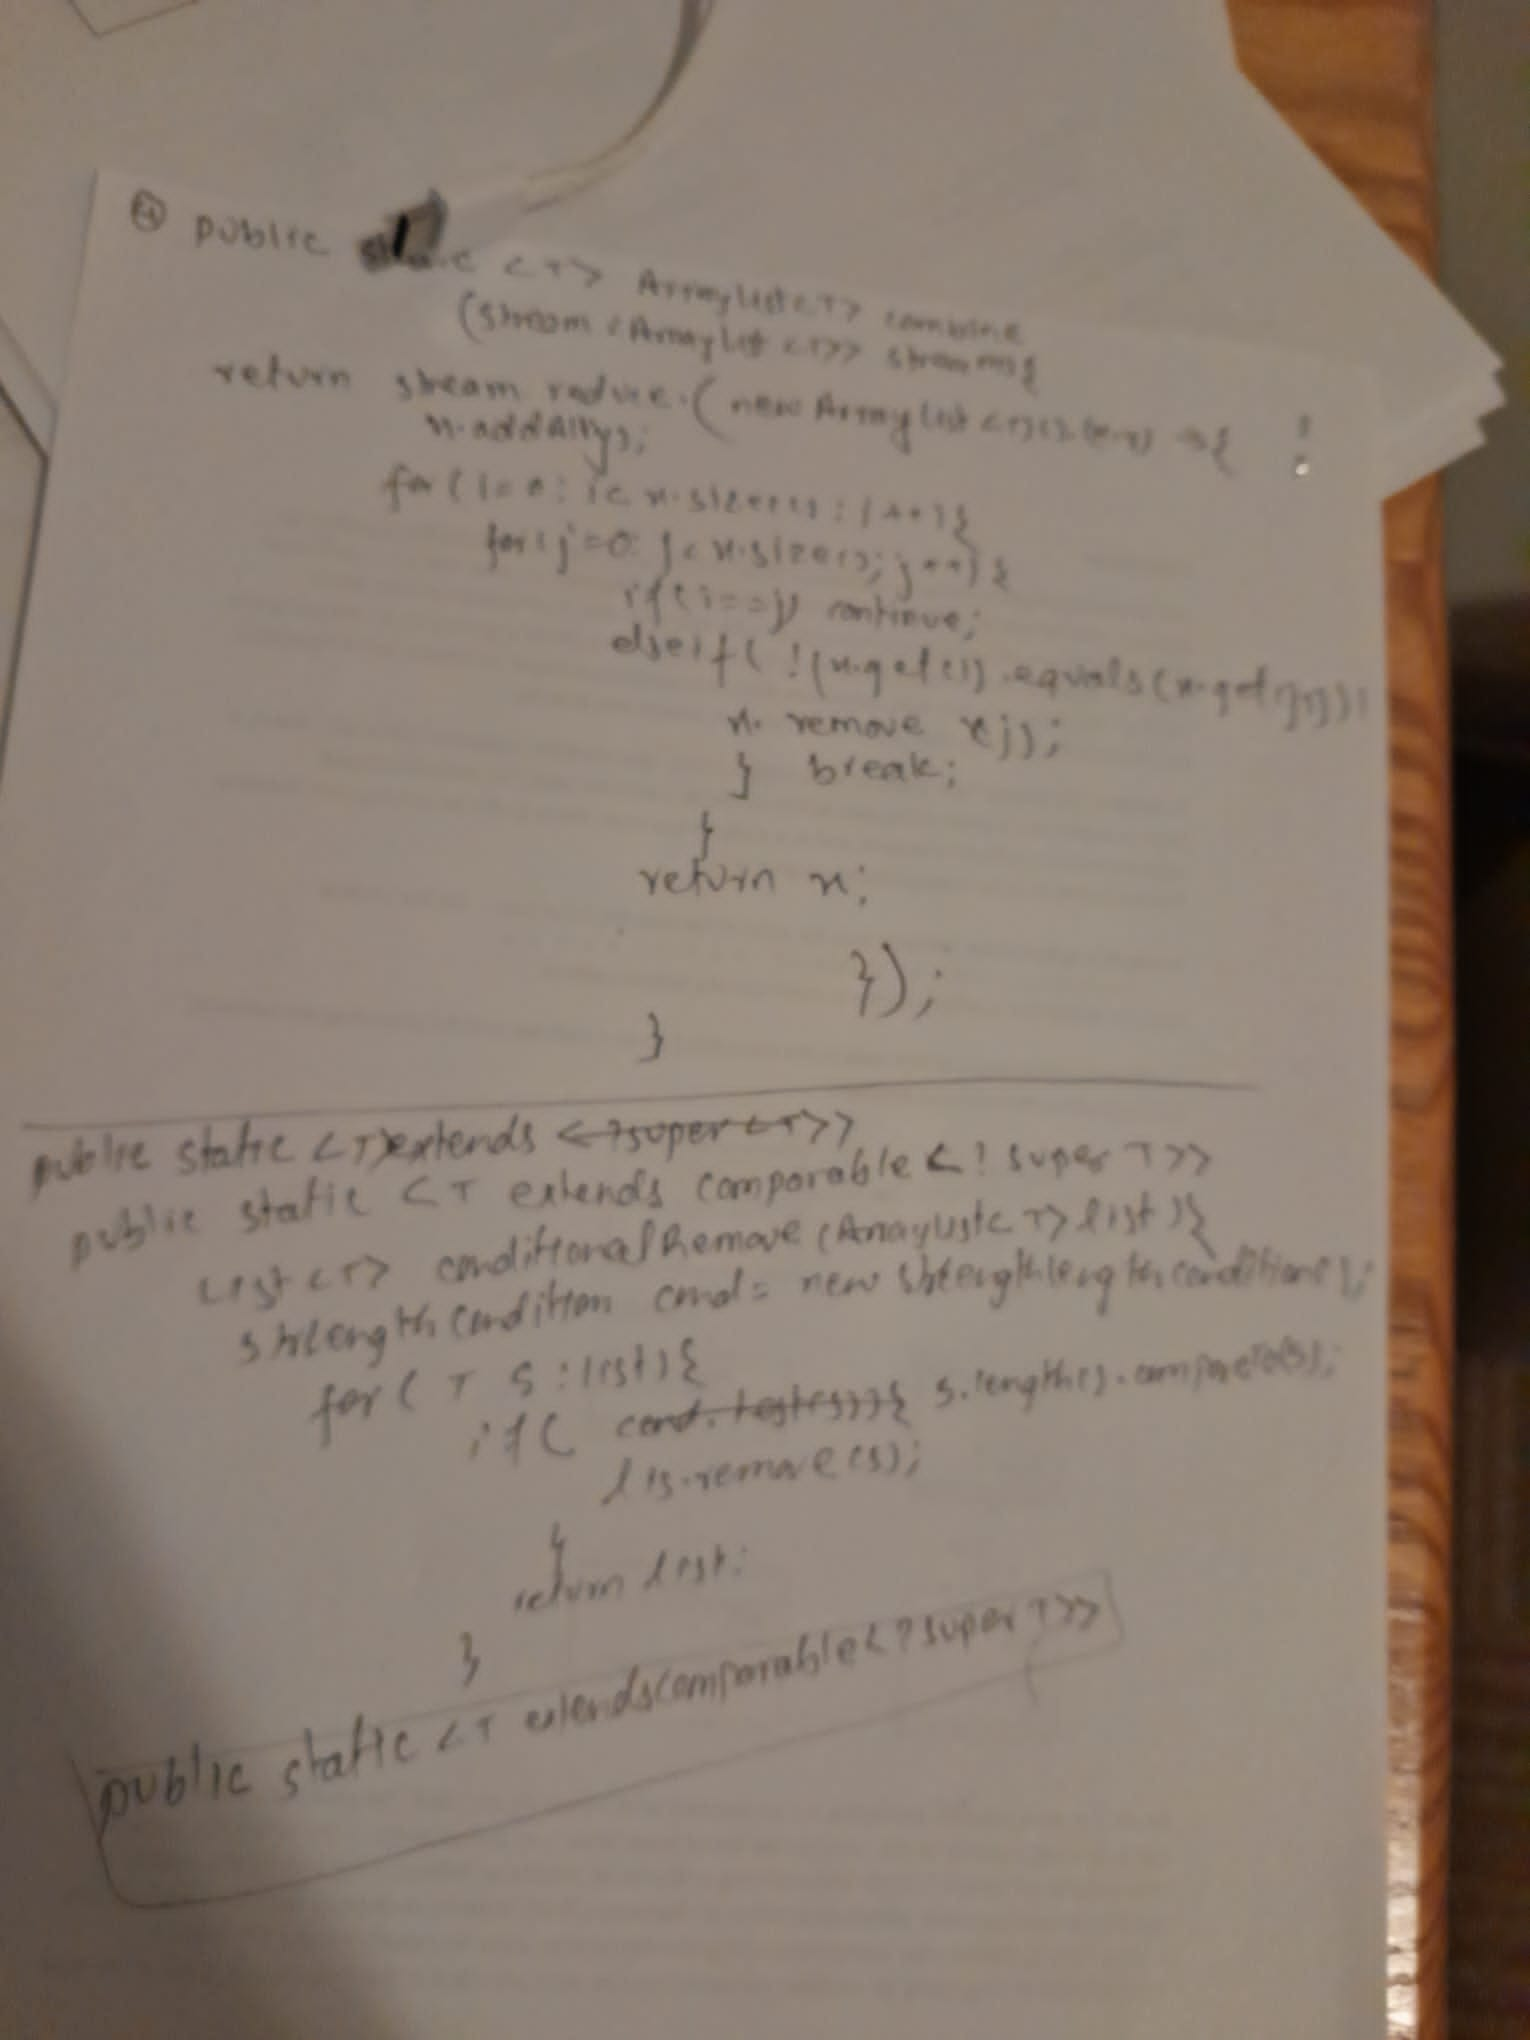 ④ public static <T> ArrayList<T> combine
(Stream <ArrayList <T>> stream){
return stream reduce.( new ArrayList <T>() => {
n.addAll(y);
for (i=0; i< n.size(); i++){
for(j=0; j< n.size(); j++){
if(i==j) continue;
elseif( !(n.get(i)).equals(n.get(j))
n. remove (j);
} break;
}
return n;
});
}
public static <T>extends <?super<T>>
public static <T extends comparable<? super T>>
List<T> conditionalRemove (ArrayList< T> list ){
strlengthcondition cond = new
for( T s : list){
if( cond.test(s)){ s.length().compareTo(s);
lis.remove(s);
}
return list;
}
public static <T extendscomparable<?super T>>